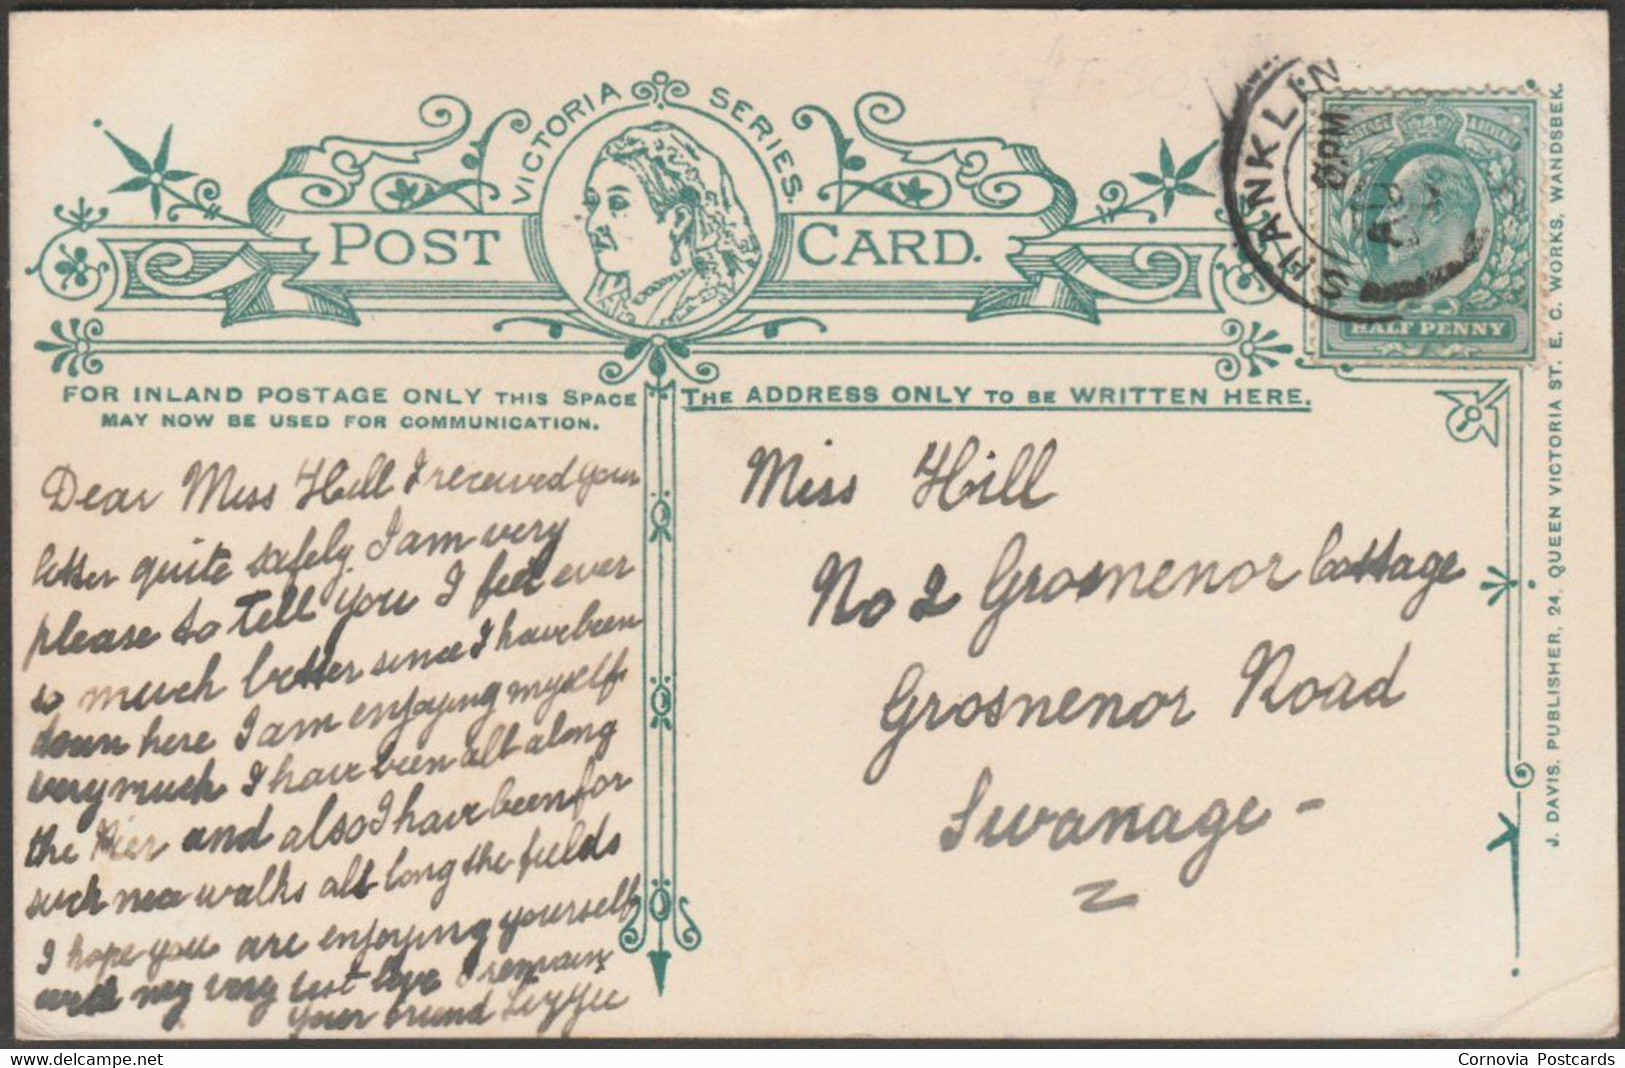 VICTORIA SERIES.
POST CARD.
SHANKLIN
HALF PENNY
FOR INLAND POSTAGE ONLY THIS SPACE
MAY NOW BE USED FOR COMMUNICATION.
THE ADDRESS ONLY TO BE WRITTEN HERE.
Dear Miss Hill I received your
letter quite safely. I am very
please to tell you I feel ever
so much better since I have been
down here I am enjoying myself
very much I have been all along
the Pier and also I have been for
such nice walks all long the fields
I hope you are enjoying yourself
with my very best love I remain
your friend Lizzie
Miss Hill
No 2 Grosnenor Cottage
Grosnenor Road
Swanage -
J. DAVIS, PUBLISHER, 24, QUEEN VICTORIA ST. E. C. WORKS, WANDSBEK.
delcampe.net
Cornovia Postcards